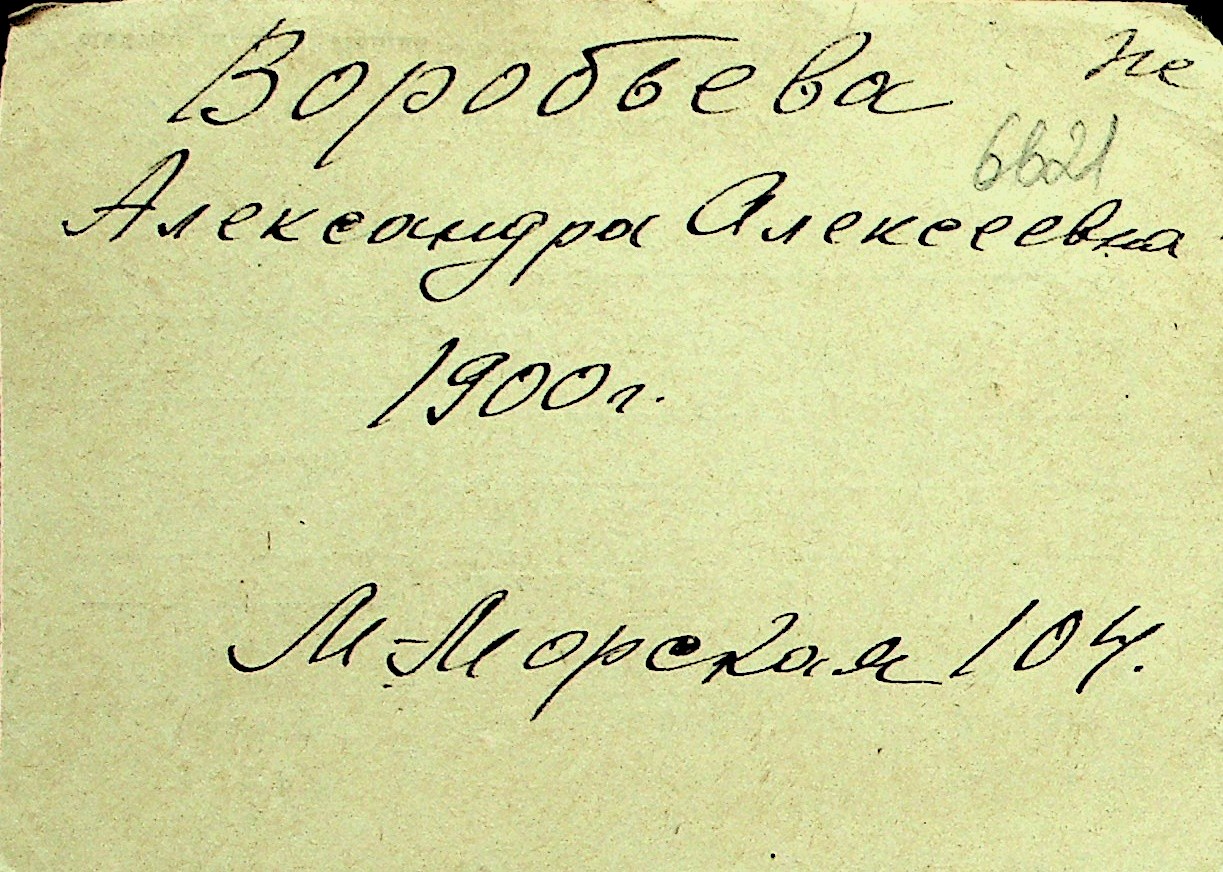 Воробьева
не
6621
Александра Алексеевна
1900г.
М-Морская 104.